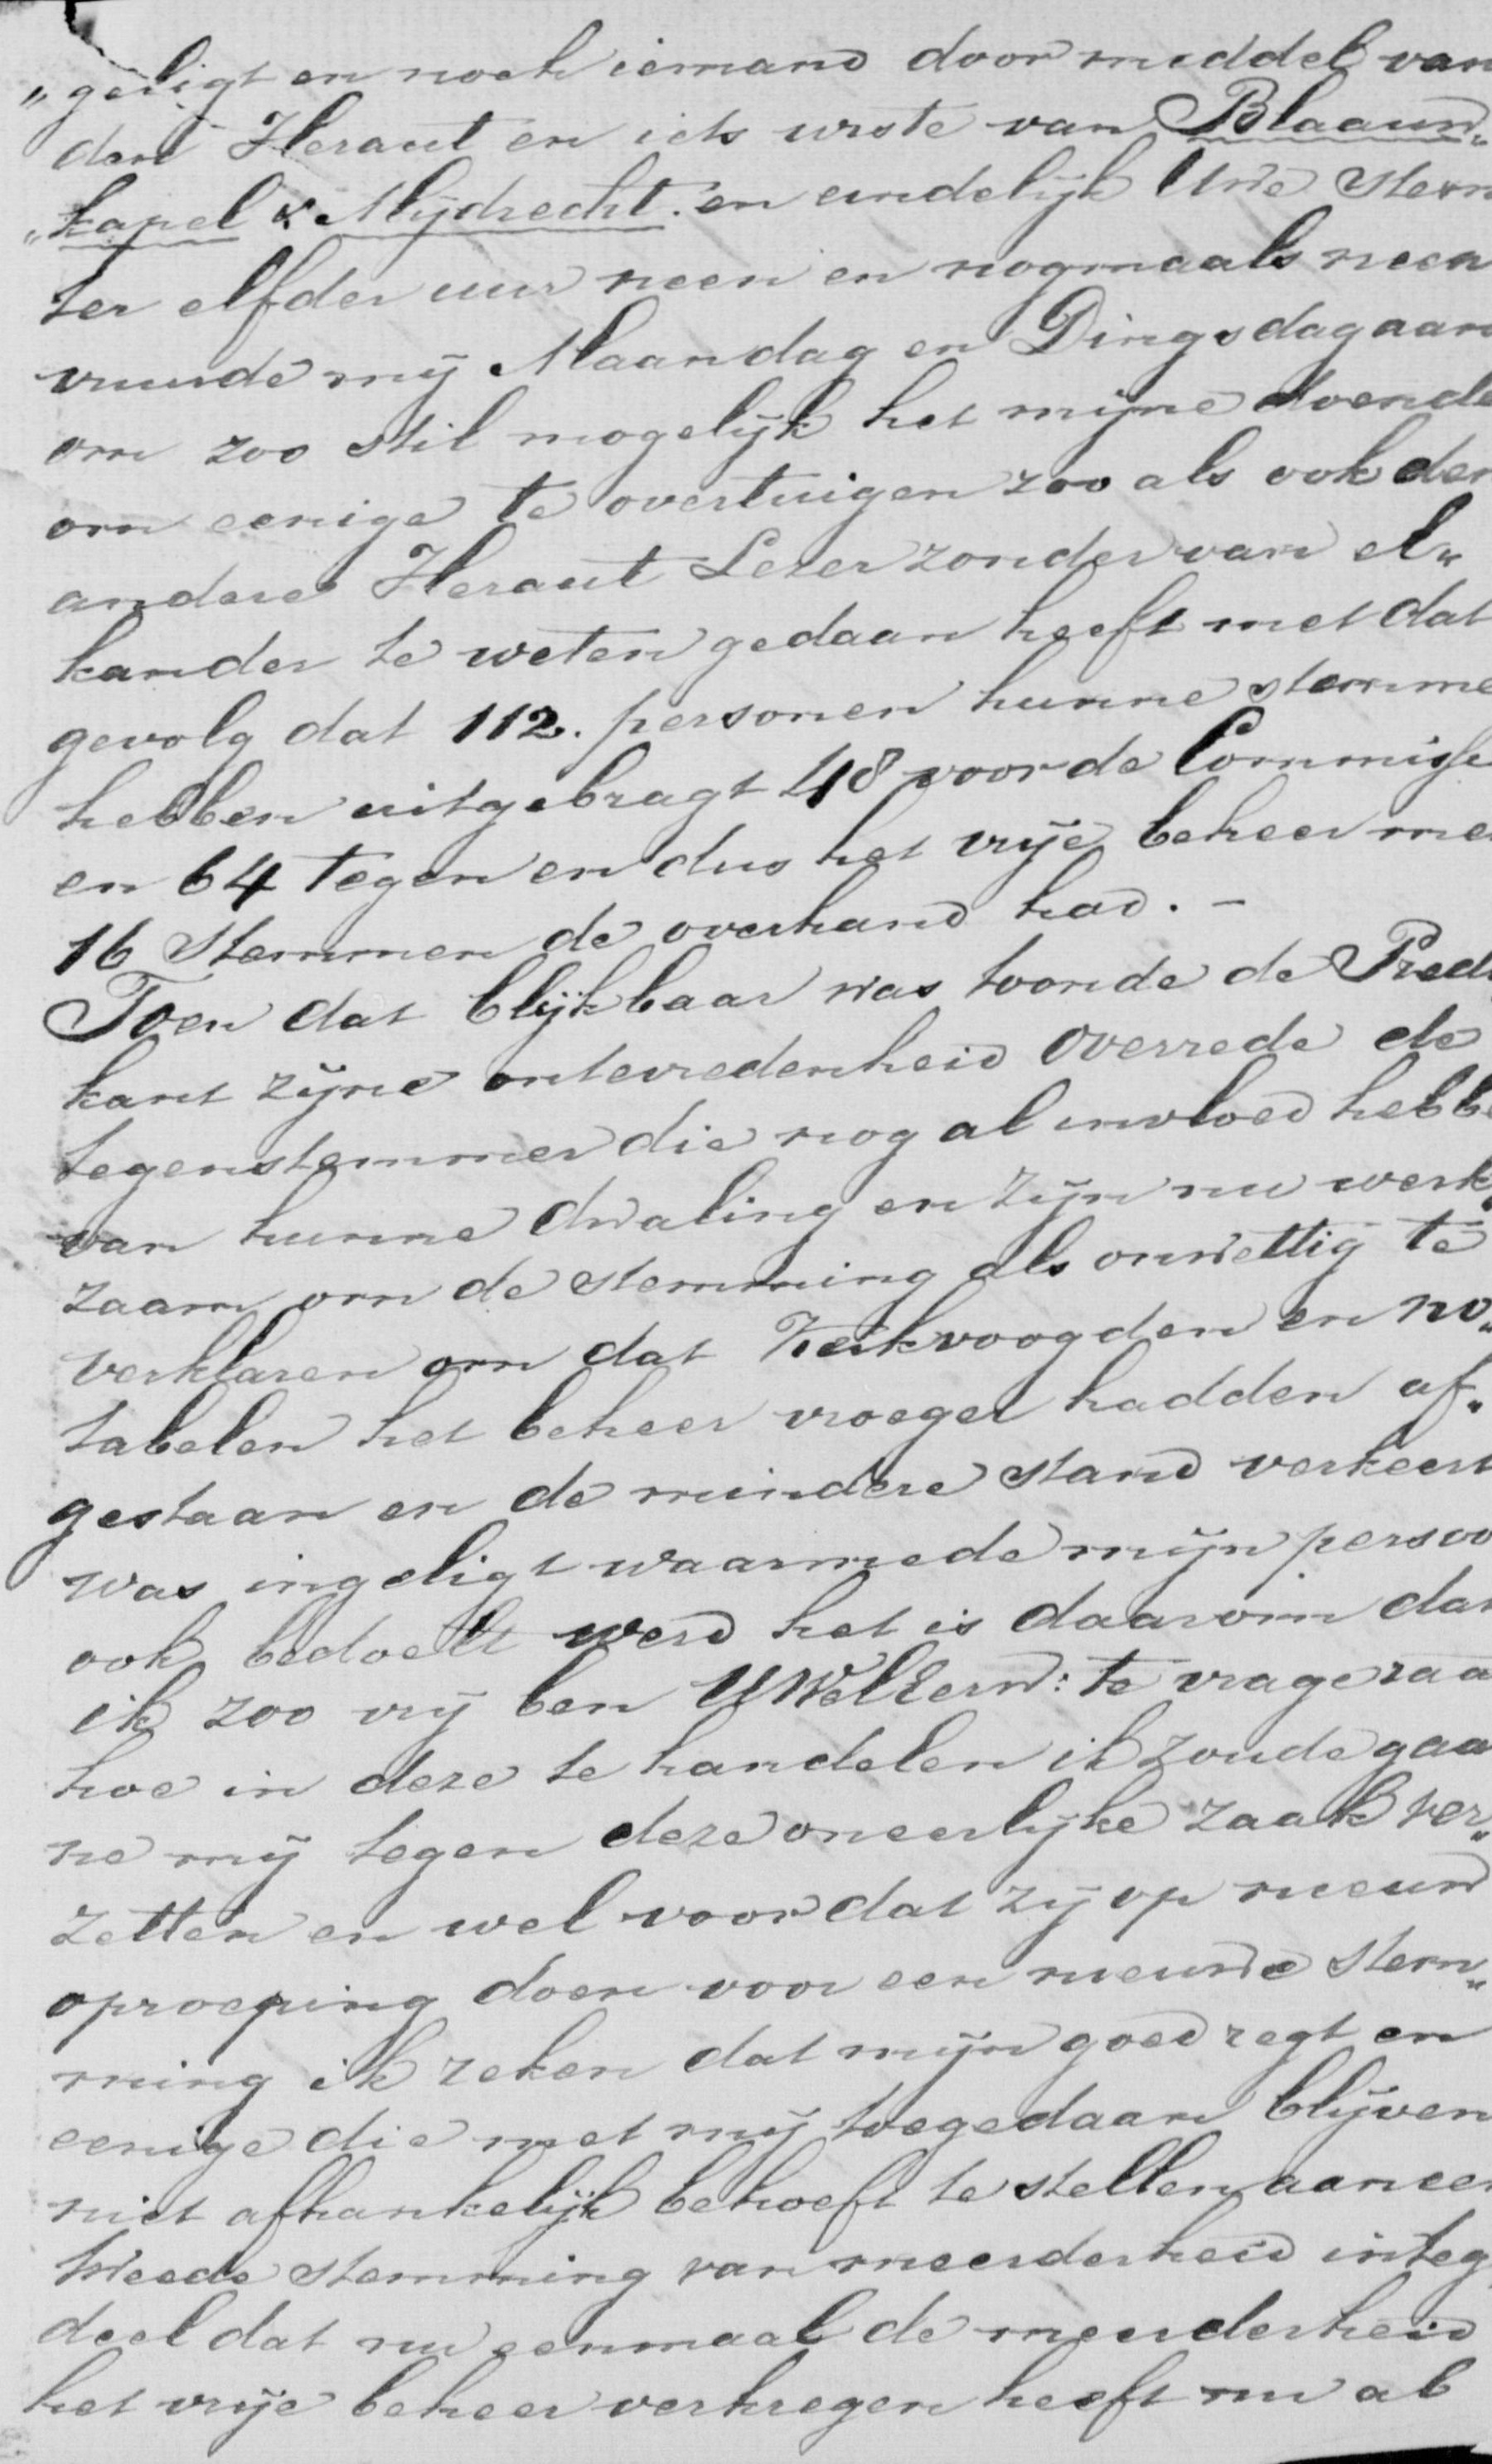 „geligt en noch iemand door middel van
den Heraut en iets wiste van Blaauw„
„kapel & Mijdrecht. en eindelijk Uwe stem
ter elfder uur neen en nogmaals neen
vuurde mij Maandag en Dingsdag aan
om zoo stil mogelijk het mijne doende
om eenige te overtuigen zoo als ook den
andere Heraut Lezer zonder van el„
kander te weten gedaan heeft met dat
gevolg dat 112. personen hunne stemme
hebben uitgebragt 48 voor de Commisse
en 64 tegen en dus het vrije beheer me
16 Stemmen de overhand had. –
Toen dat blijkbaar was toonde de Predi
kant zijne ontevredenheid overrede de
tegenstemmer die nog al invloed hebbe
van hunne dwaling en zijn nu werk„
zaam om de stemming als onwettig te
verklaren om dat Kerkvoogden en no„
tabelen het beheer vroeger hadden af„
gestaan en de mindere stand verkeert
was ingeligt waarmede mijn persoo
ook bedoelt werd het is daarom dat
ik zoo vrij ben UWelEerw: te vrage raa
hoe in deze te handelen ik zoude gaa
ne mij tegen deze oneerlijke zaak ver„
zetten en wel voor dat zij op nieuw
oproeping doen voor een nieuwe stem„
ming ik reken dat mijn goed regt en
eenige die met mij toegedaan blijven
niet afhankelijk behoeft te stellen aan een
tweede stemming van meerderheid integ
deel dat nu eenmaal de meerderheid
het vrije beheer verkregen heeft nu al